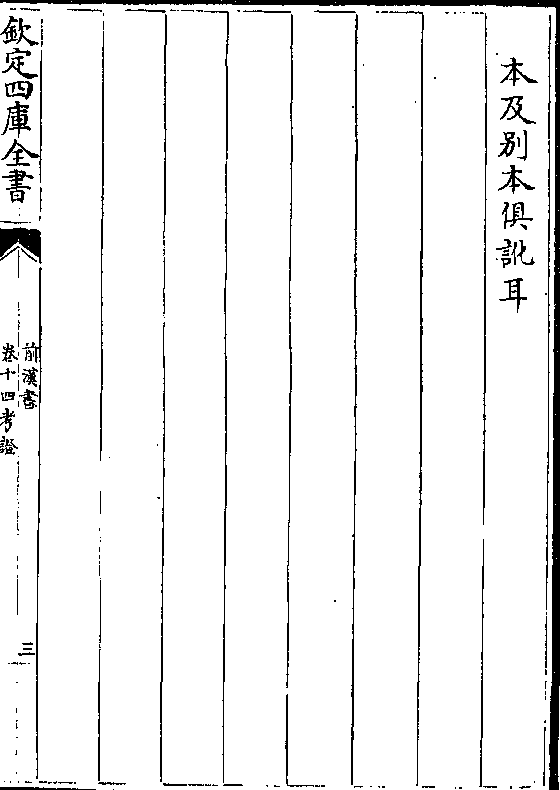 本及別本俱訛耳
欽定四庫全書
前漢書
卷十四考證
三